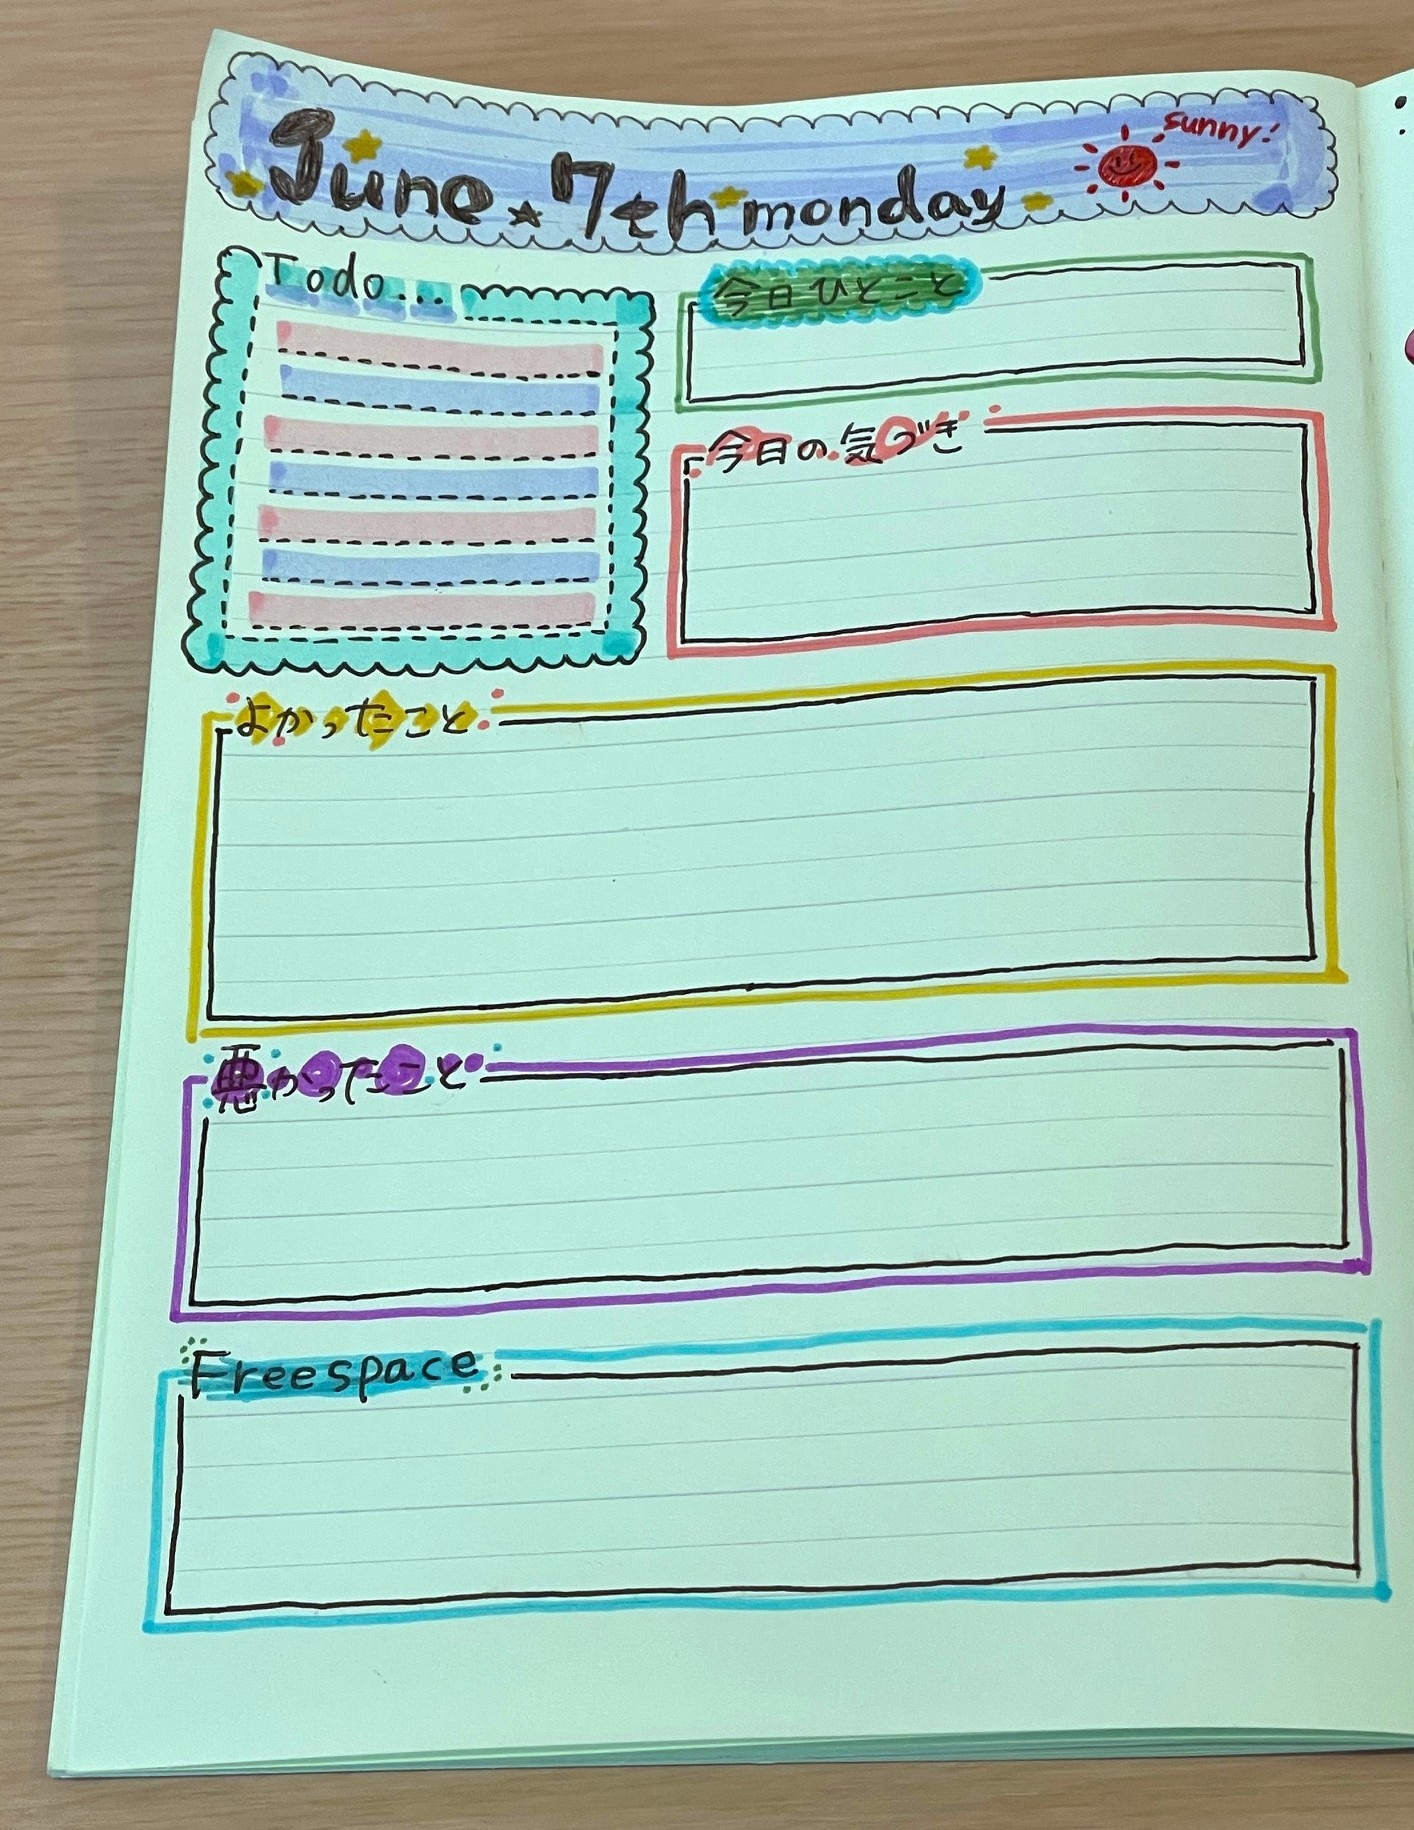 June 7th monday
sunny!
Todo...
今日ひとこと
今日の気づき
よかったこと
悪かったこと
Freespace